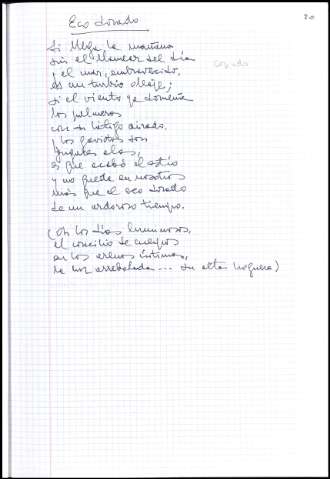 Eco dorado
20
Si llega la mañana
sin el llamear del día
y el mar, embravecido,
es un turbio oleaje;
si el viento ya domeña
las palmeras
con su látigo airado,
y las gaviotas son
fugaces alas,
es que acabó el estío
y no queda en nosotros
más que el eco dorado
de un ardoroso tiempo.
(Oh los días luminosos,
el concilio de cuerpos
en las arenas íntimas,
la luz arrebolada... su alta hoguera)